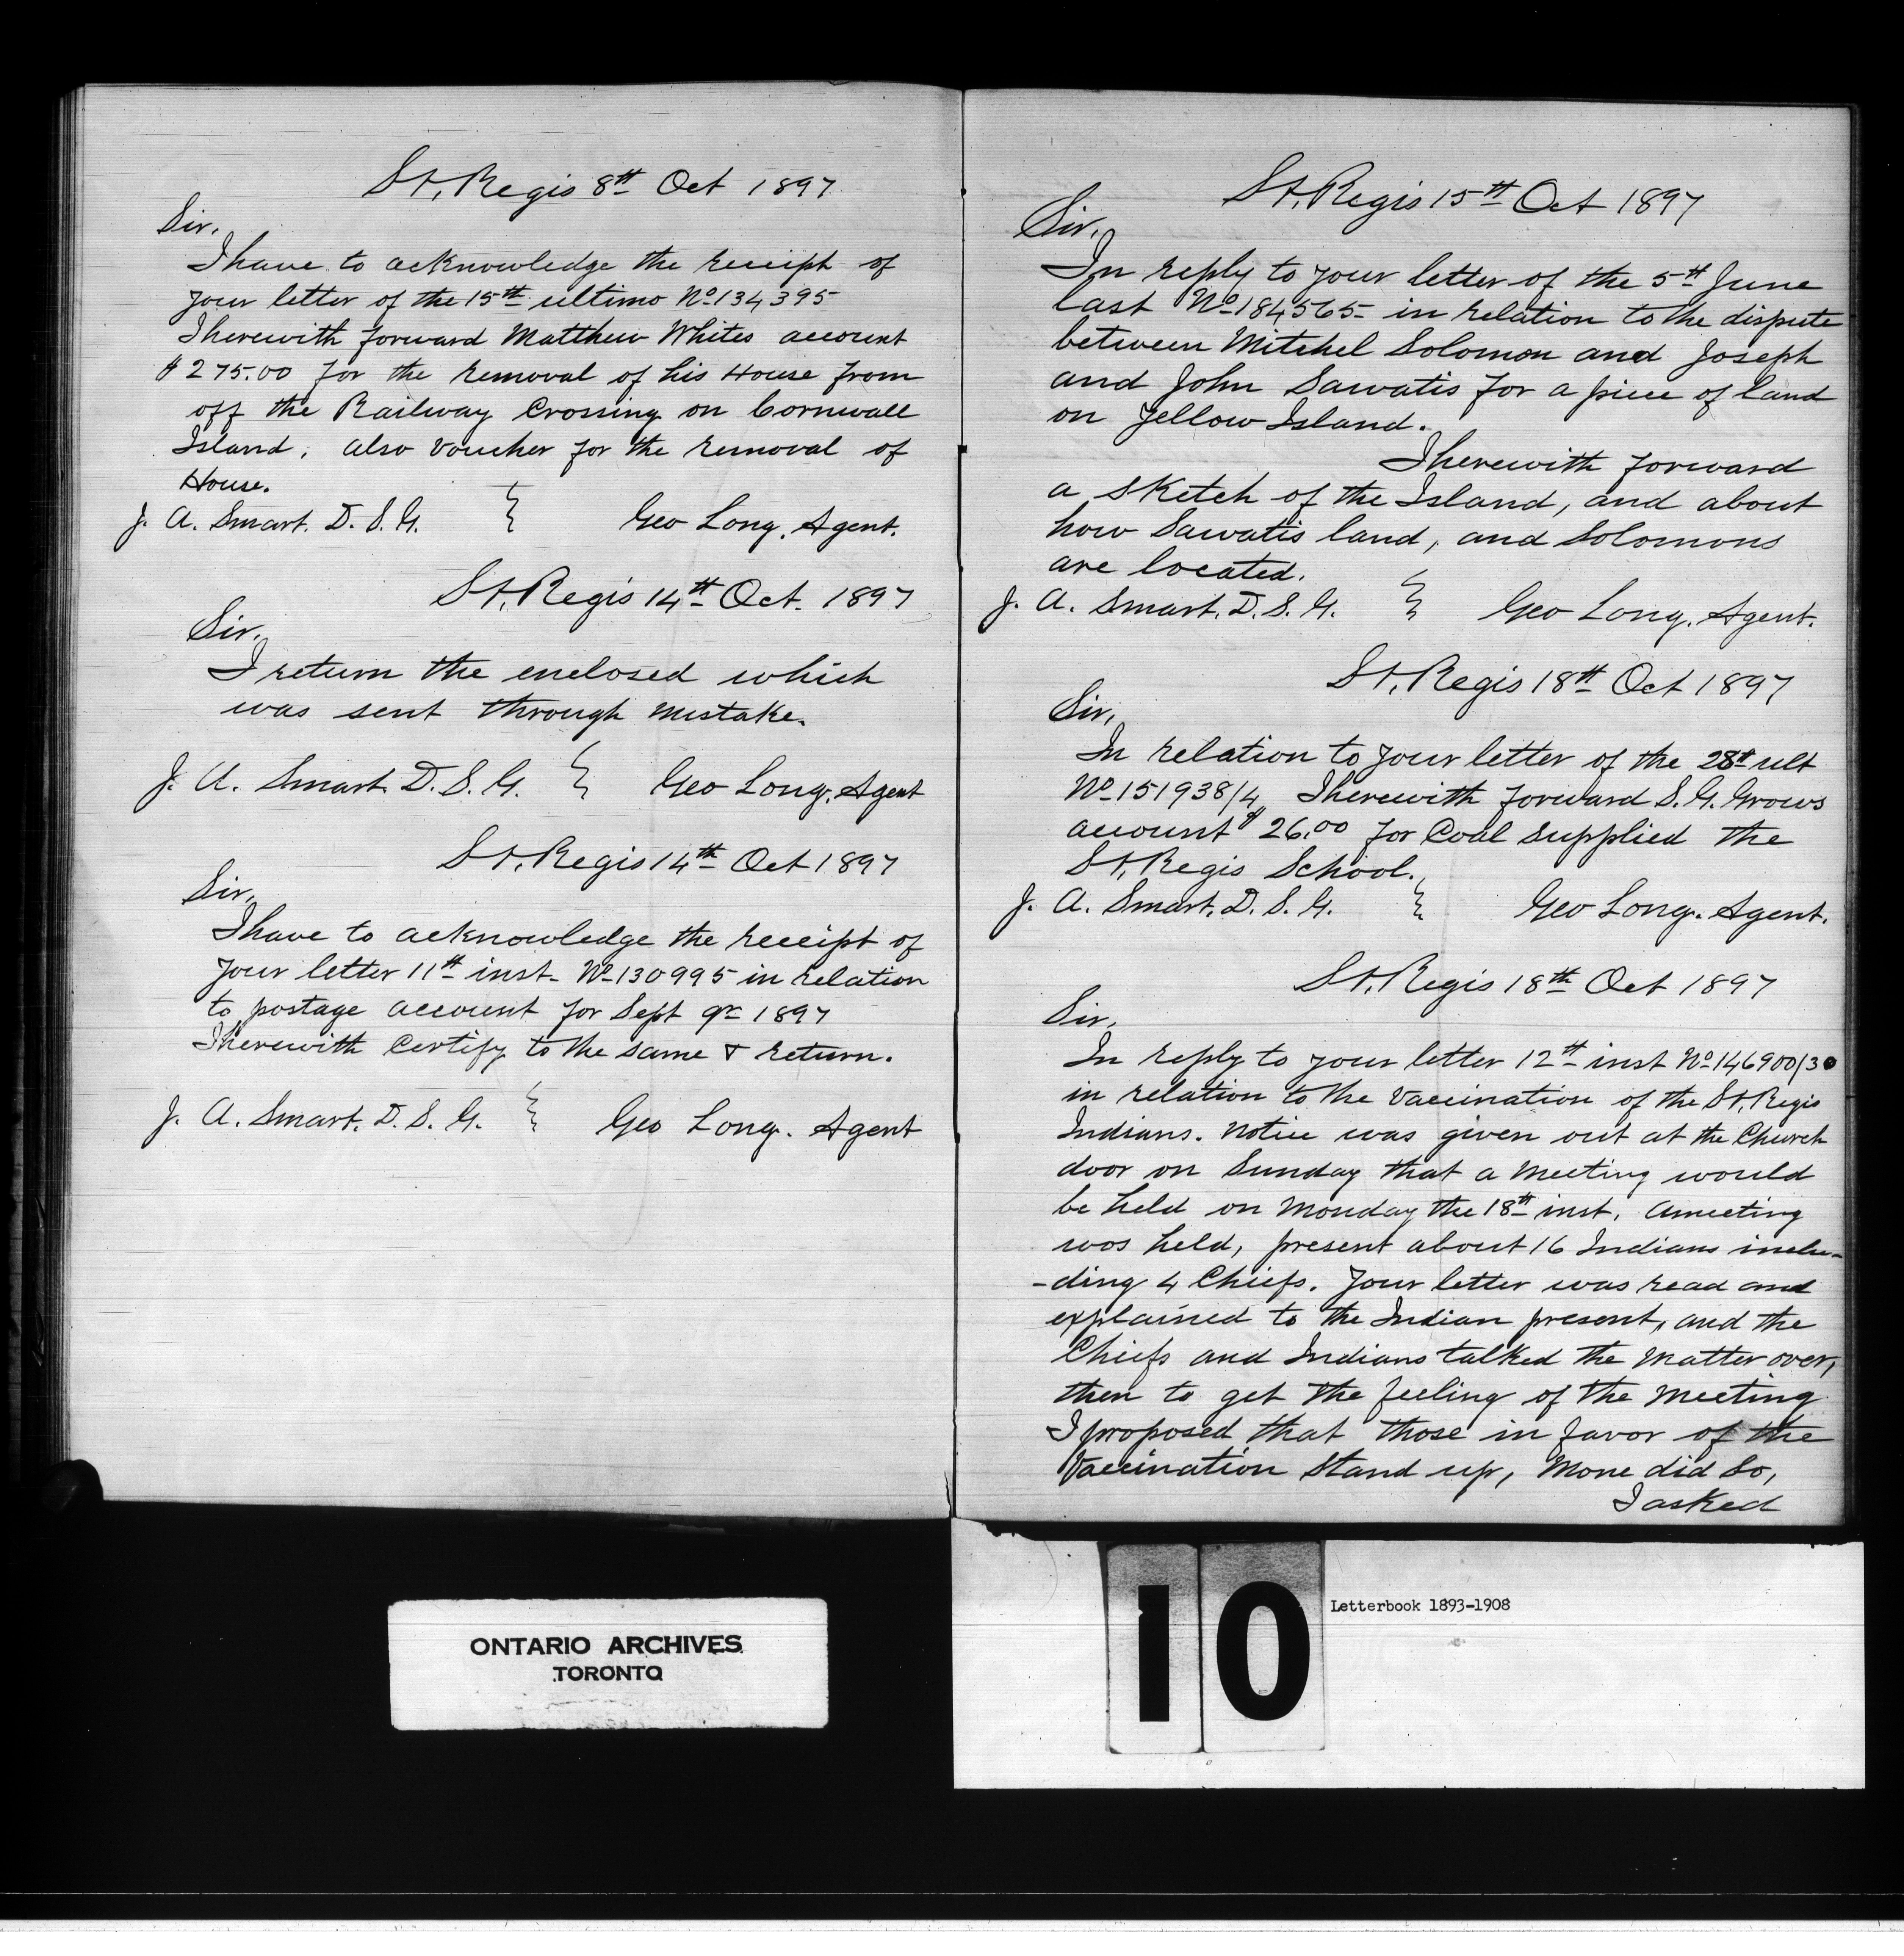 St, Regis 8th Oct 1897
Sir,
I have to acknowledge the receipt of
your letter of the 15th ultimo No 134395
I herewith forward Matthew Whites account
$275.00 for the removal of his House from
off the Railway Crossing on Cornwall
Island, also voucher for the removal of
House.
J. A. Smart. D. S. G. } Geo Long, Agent.
St, Regis 14th Oct. 1897
Sir,
I return the enclosed which
was sent through mistake.
J. A. Smart. D. S. G. } Geo Long, Agent
St, Regis 14th Oct 1897
Sir,
I have to acknowledge the receipt of
your letter 11th inst- No 130995 in relation
to postage account for Sept qr 1897
I herewith Certify to the same & return.
J. A. Smart. D. S. G. } Geo Long. Agent
St, Regis 15th Oct 1897
Sir,
In reply to your letter of the 5th June
last No 184565- in relation to the dispute
between Mitchel Solomon and Joseph
and John Sawatis for a piece of land
on Yellow Island.
I herewith forward
a sketch of the Island, and about
how Sawatis land, and Solomons
are located.
J. A. Smart. D. S. G. } Geo Long. Agent.
St, Regis 18th Oct 1897
Sir,
In relation to your letter of the 28th ult
No 151938/4, I herewith forward S. G. Grows
account $26.00 for Coal supplied the
St, Regis School.
J. A. Smart. D. S. G. } Geo Long. Agent.
St, Regis 18th Oct 1897
Sir,
In reply to your letter 12th inst No 146900/30
in relation to the vaccination of the St, Regis
Indians. Notice was given out at the Church
door on Sunday that a meeting would
be held on Monday the 18th inst. A meeting
was held, present about 16 Indians inclu-
-ding 4 Chiefs. Your letter was read and
explained to the Indian present, and the
Chiefs and Indians talked the matter over,
then to get the feeling of the meeting
I proposed that those in favor of the
Vaccination stand up, None did so,
I asked
ONTARIO ARCHIVES
TORONTO
10
Letterbook 1893-1908